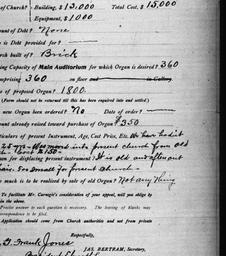 of Church? Building, $13,000 Total Cost, $15,000
Equipment, $1000
ount of Debt? None
is Debt provided for?
rch built of? Brick
ing Capacity of Main Auditorium for which Organ is desired? 360
mprising 360 on floor and in Gallery.
e of proposed Organ? 1800.
(Form should not be returned till this has been required into and settled.)
were Organ been ordered? No Date of order?
ount already raised toward purchase of Organ? $350
iculars of present Instrument, Age, Cost Price, Etc. We have had it
25 yrs. We moved into present church from old
on for displacing present instrument? It is old and often out
air. Too Small for present Church
much is to be realized by sale of old Organ? Not any thing
To facilitate Mr. Carnegie's consideration of your appeal, will you oblige by
in the above.
Precise answer to each question is necessary. The leaving of blanks may
correspondence to be filed.
Application should come from Church authorities and not from private
Respectfully,
JAS. BERTRAM, Secretary,
G. Frank Jones